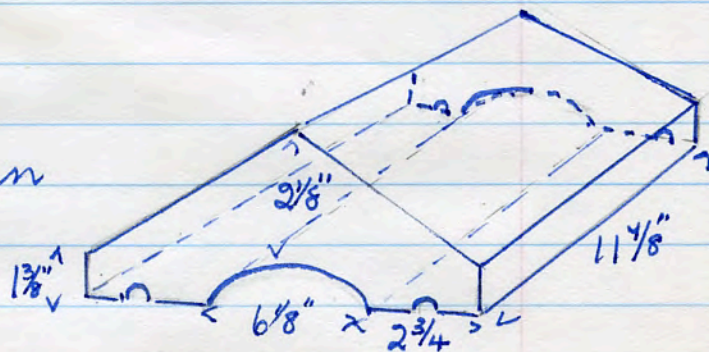 m
2⅛"
1⅜"
6⅛"
2¾
11⅛"